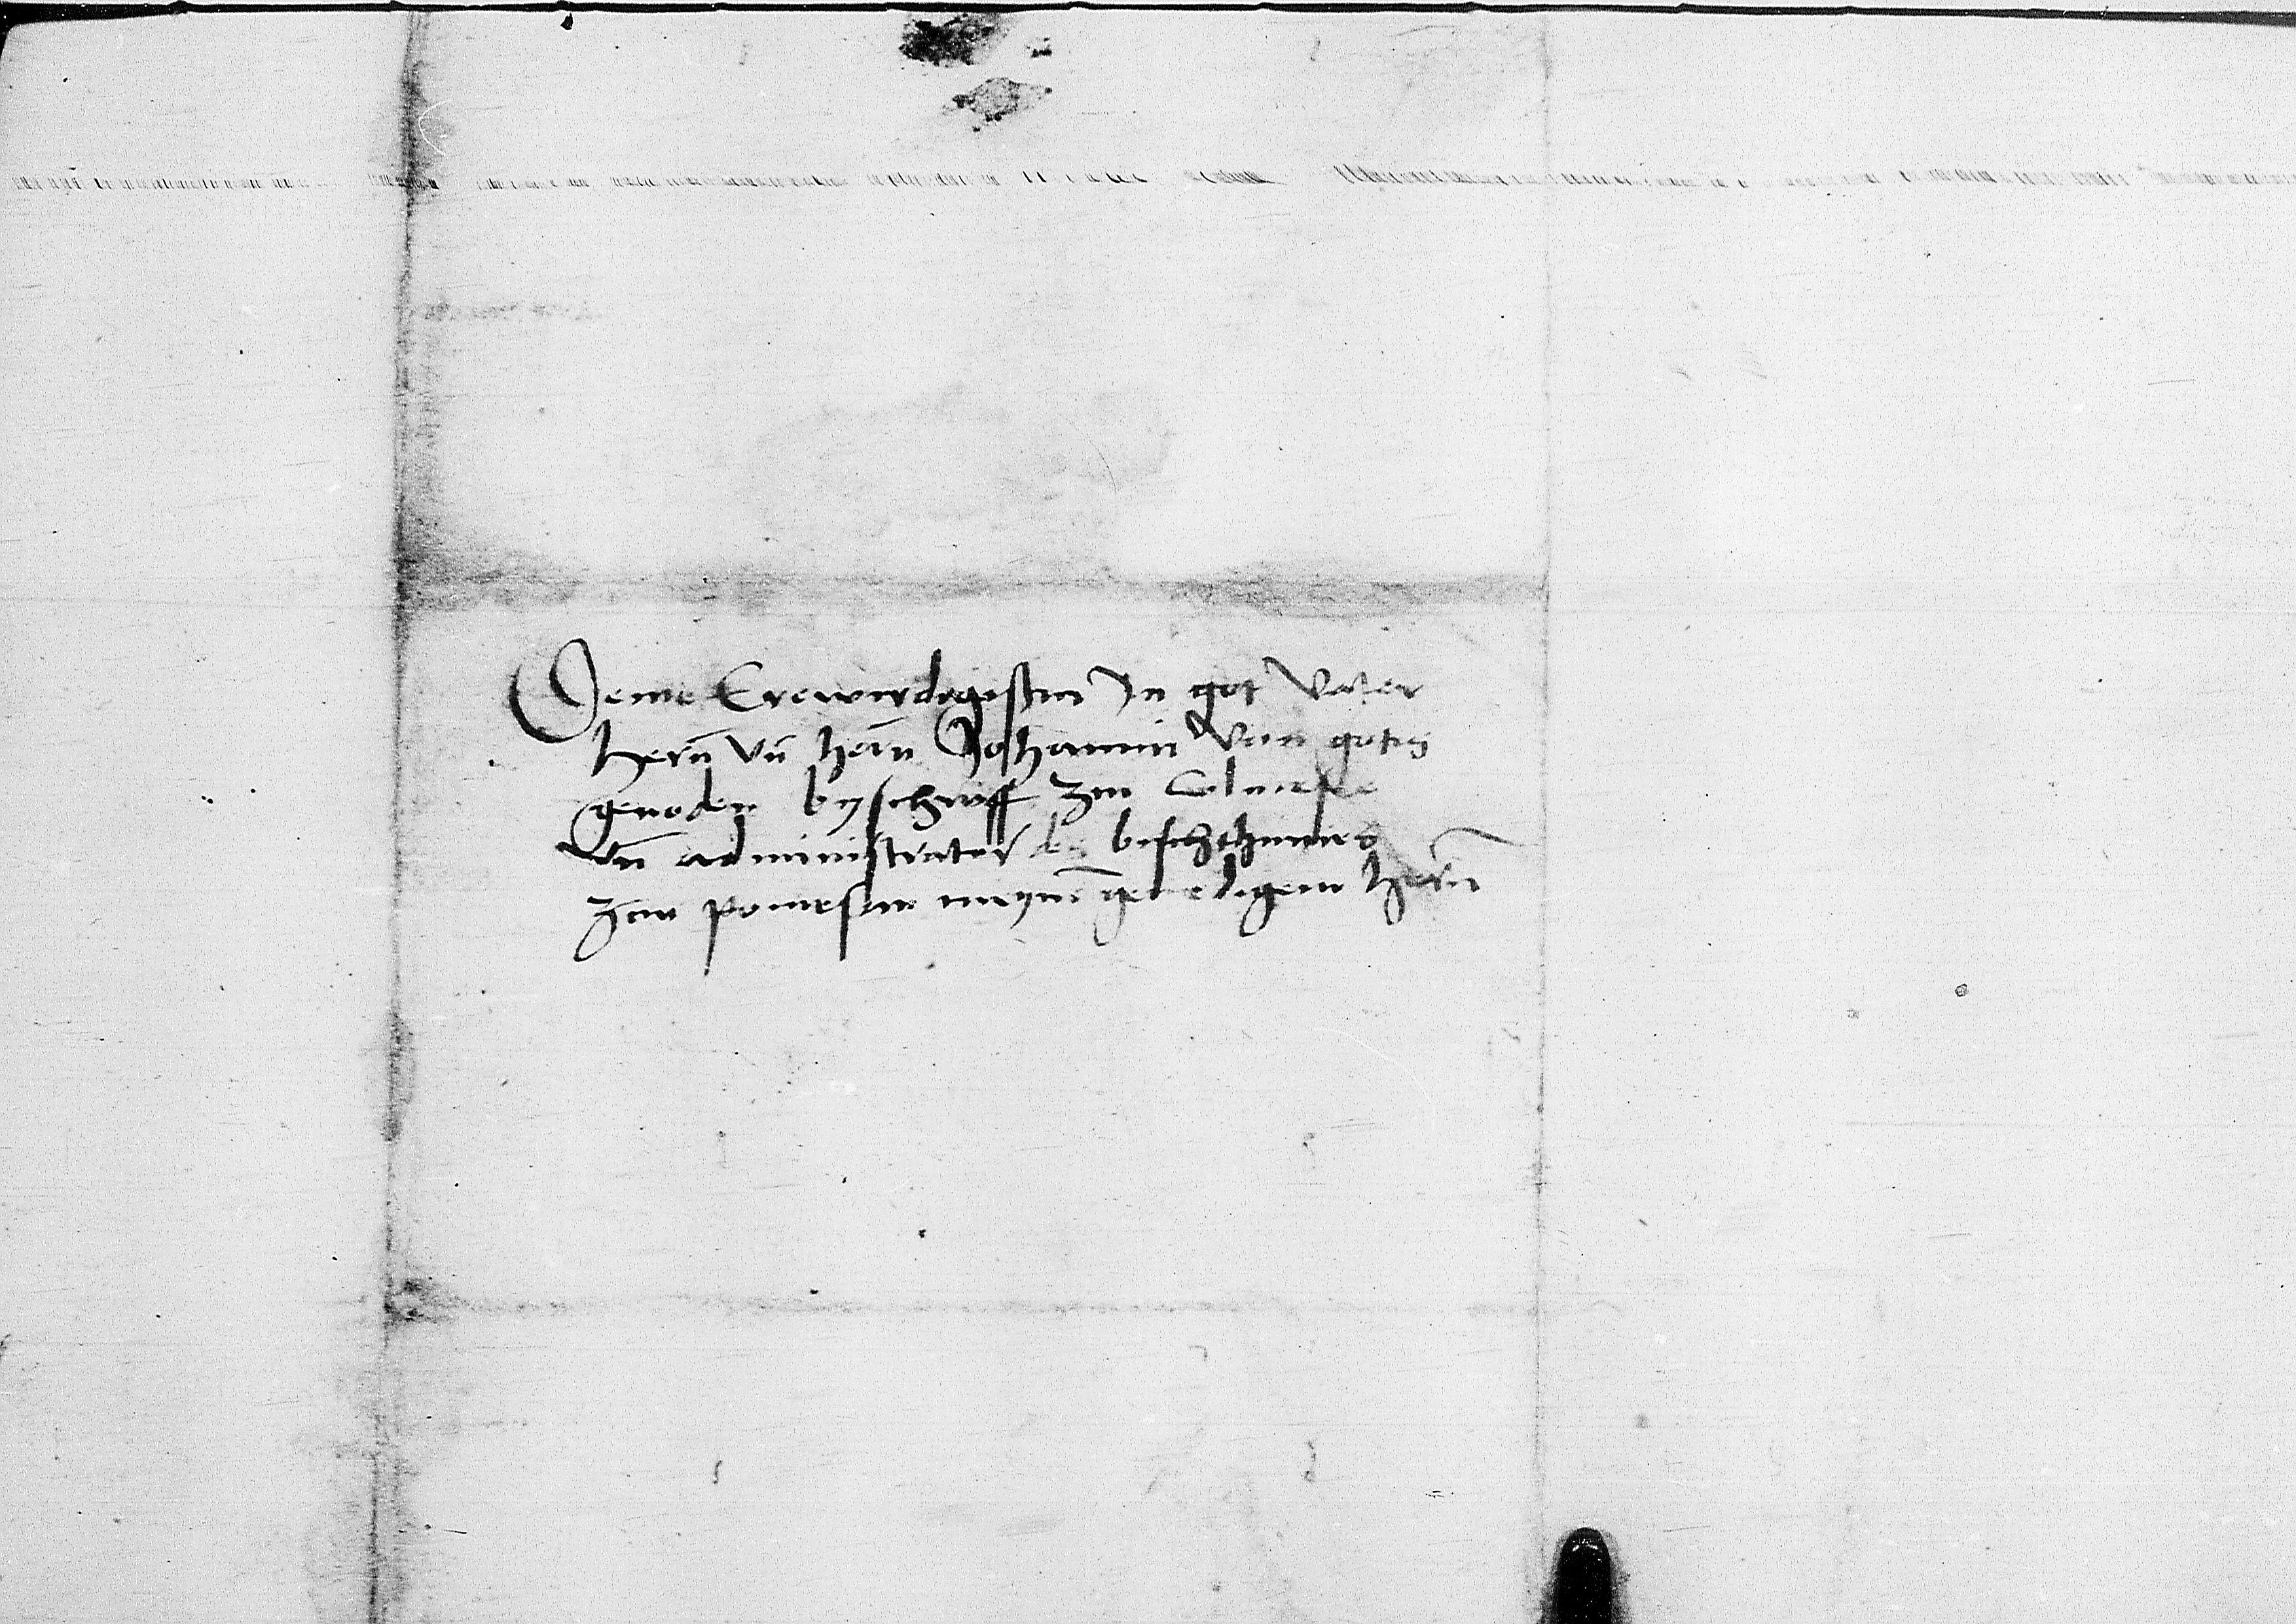 Deme Erewirdigesten Jn got Vater
hern̄ vn̄ hern̄ Johannin Von gotes
genoden byschoff zcu Colmesee
vn̄ administrator des bischthumes
zcu pomesan meynē genedigem hern̄